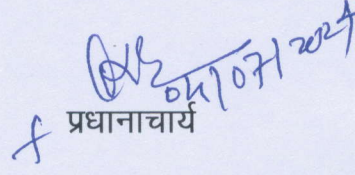 04/07/2024
प्रधानाचार्य